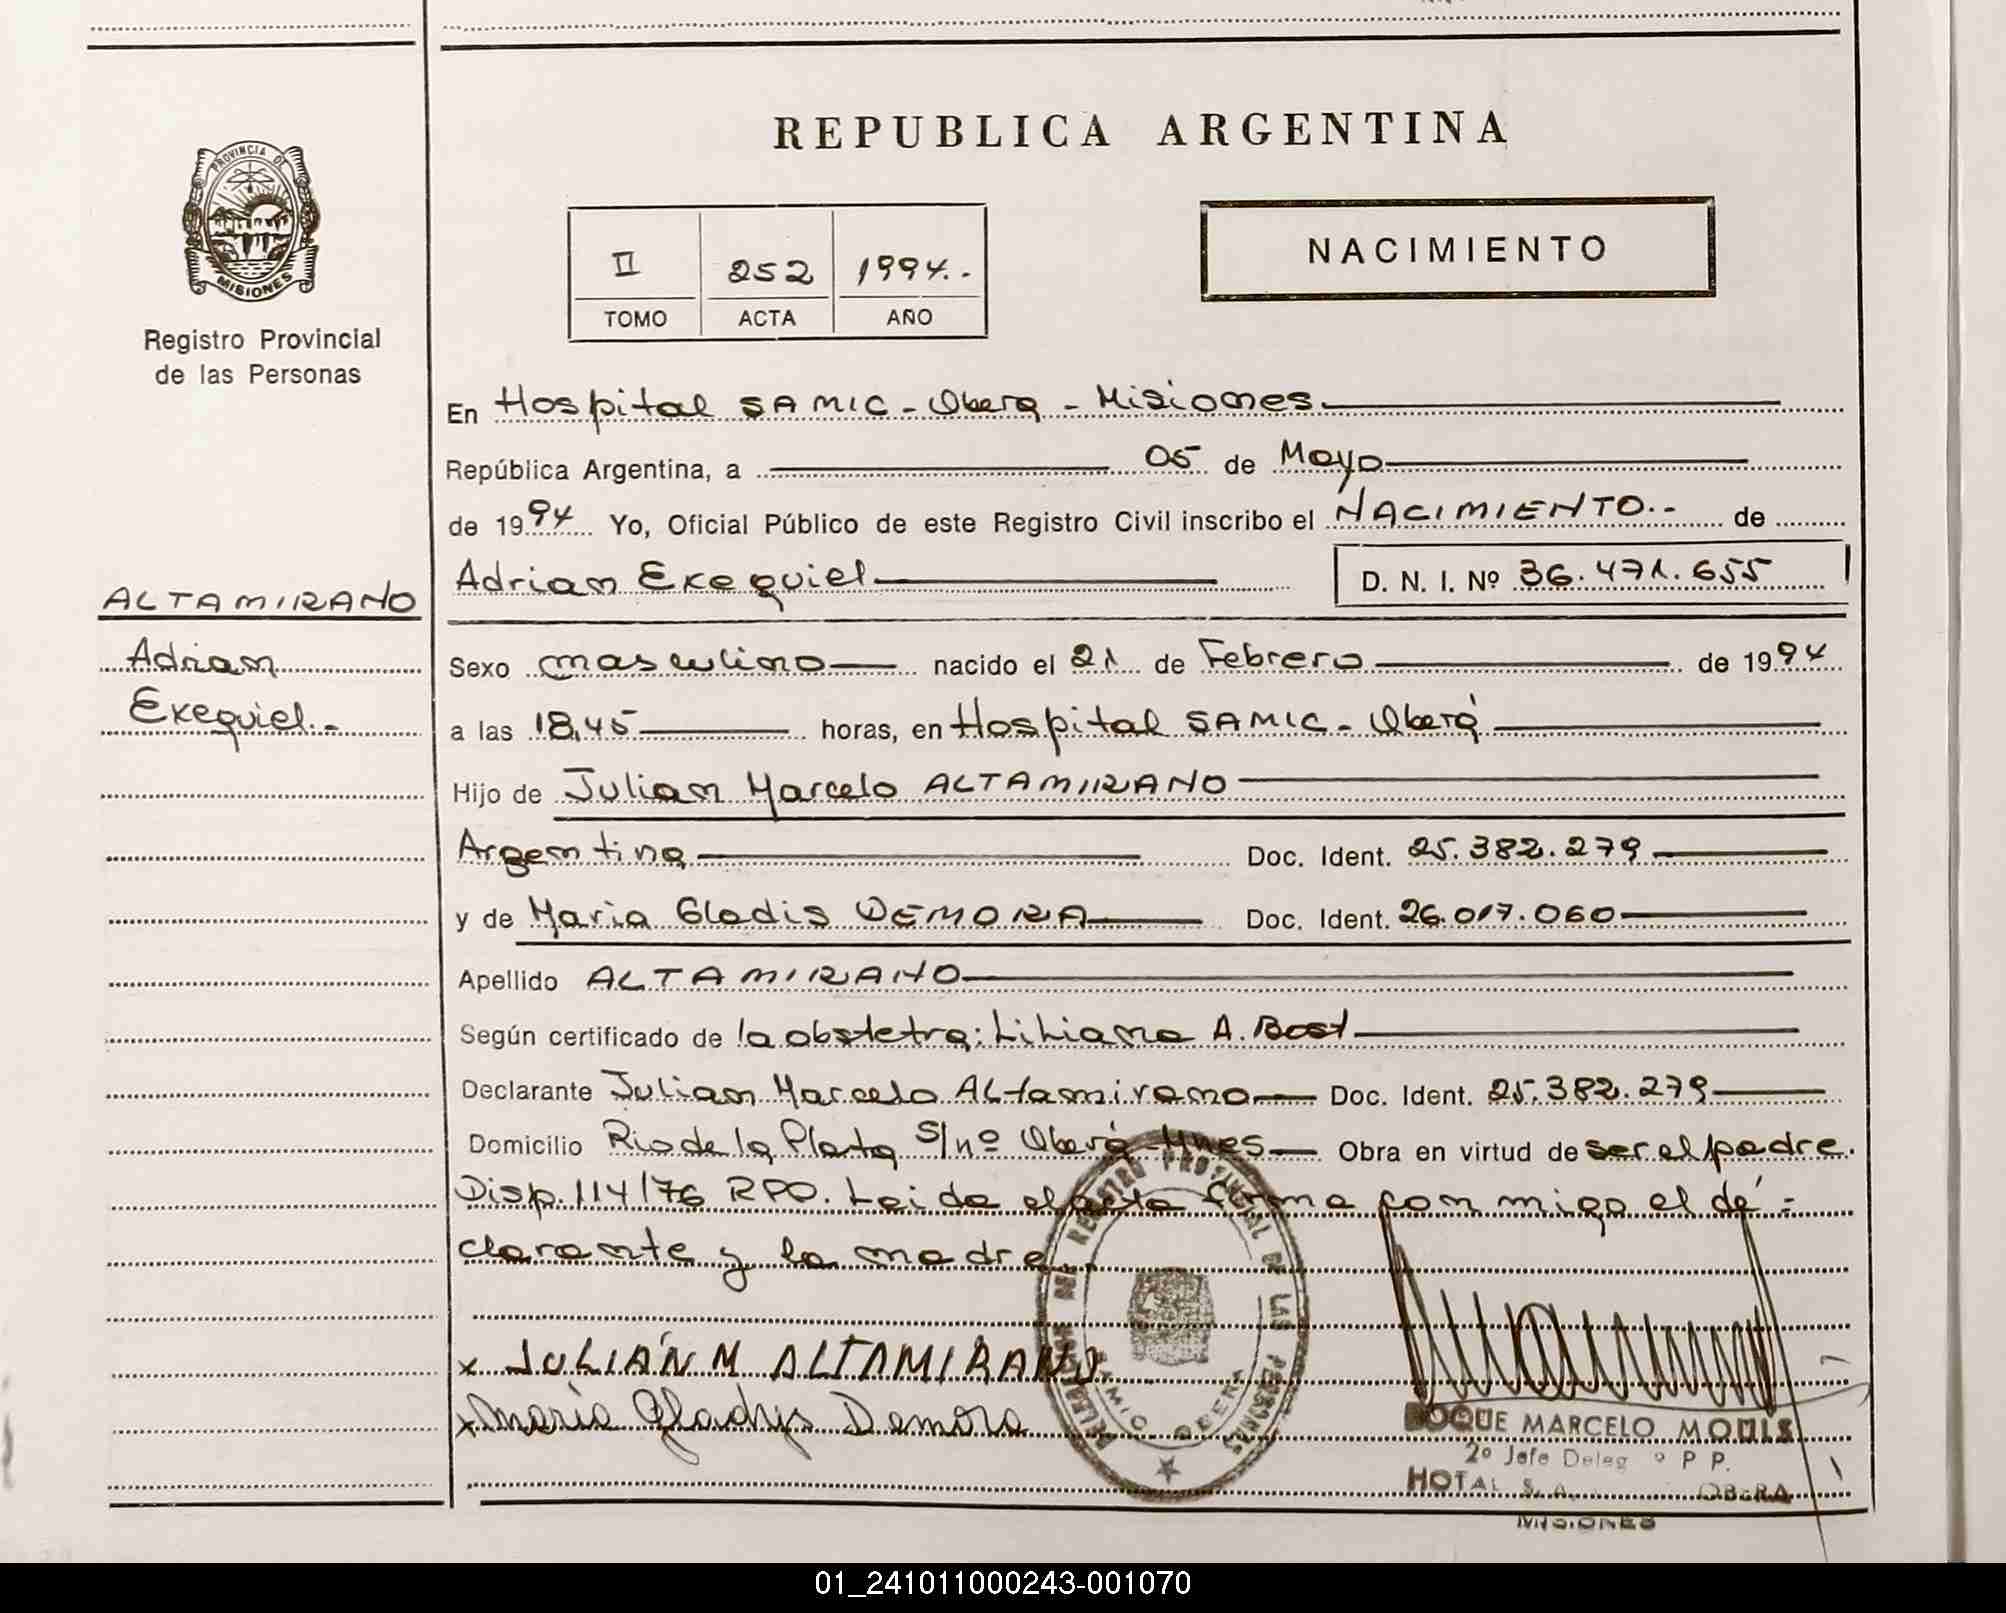 REPUBLICA ARGENTINA
PROVINCIA DE
MISIONES
Registro Provincial
de las Personas
II 252 1994.-
TOMO ACTA AÑO
NACIMIENTO
En Hospital SAMIC - Oberá - Misiones
República Argentina, a 05 de Mayo
de 1994 Yo, Oficial Público de este Registro Civil inscribo el NACIMIENTO.- de
Adrian Exequiel D. N. I. Nº 36.471.655
ALTAMIRANO
Adrian
Exequiel.-
Sexo masculino nacido el 21 de Febrero de 1994
a las 18,45 horas, en Hospital SAMIC - Oberá
Hijo de Julian Marcelo ALTAMIRANO
Argentina Doc. Ident. 25.382.279
y de Maria Gladis DEMORA Doc. Ident. 26.017.060
Apellido ALTAMIRANO
Según certificado de la obstetra: Liliana A. Bost
Declarante Julian Marcelo Altamirano Doc. Ident. 25.382.279
Domicilio Rio de la Plata S/nº Oberá Mnes Obra en virtud de ser el padre.
Disp. 114/76 RPP. Leida el acta firma con migo el de=
clarante y la madre
x JULIÁN M ALTAMIRANO
x María Gladys Demora
REGISTRO PROVINCIAL DE LAS PERSONAS
OBERA
ROQUE MARCELO MOULS
2º Jefe Deleg P P.
HOTAL S.A. OBERA
MISIONES
01_241011000243-001070